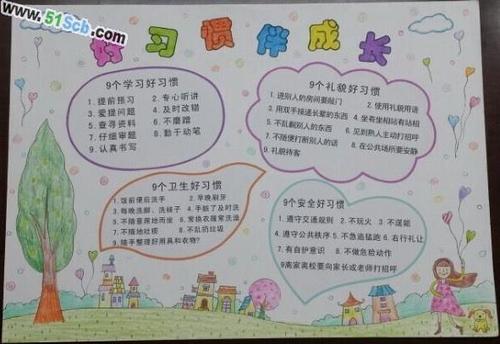 www.51Scb.com
好习惯伴成长
9个学习好习惯
1. 提前预习 2. 专心听讲
3. 爱提问题 4. 及时改错
5. 查寻资料 6. 不磨蹭
7. 仔细审题 8. 勤于动笔
9. 认真书写
9个礼貌好习惯
1. 进别人的房间要敲门 2. 使用礼貌用语
3. 用双手接递长辈的东西 4. 坐有坐相站有站相
5. 不乱翻别人的东西 6. 见到熟人主动打招呼
7. 不随便打断别人的话 8. 在公共场所要安静
9. 礼貌待客
9个卫生好习惯
1. 饭前便后洗手 2. 早晚刷牙
3. 每晚洗脚、洗袜子 4. 手脏了及时洗
5. 不随意席地而坐 6. 常换衣服常洗澡
7. 不随地吐痰 8. 不乱扔垃圾
9. 随手整理好用具和衣物?
9个安全好习惯
1. 遵守交通规则 2. 不玩火 3. 不逞能
4. 遵守公共秩序 5. 不急追猛跑 6. 右行礼让
7. 有自护意识 8. 不做危险动作
9离家离校要向家长或老师打招呼